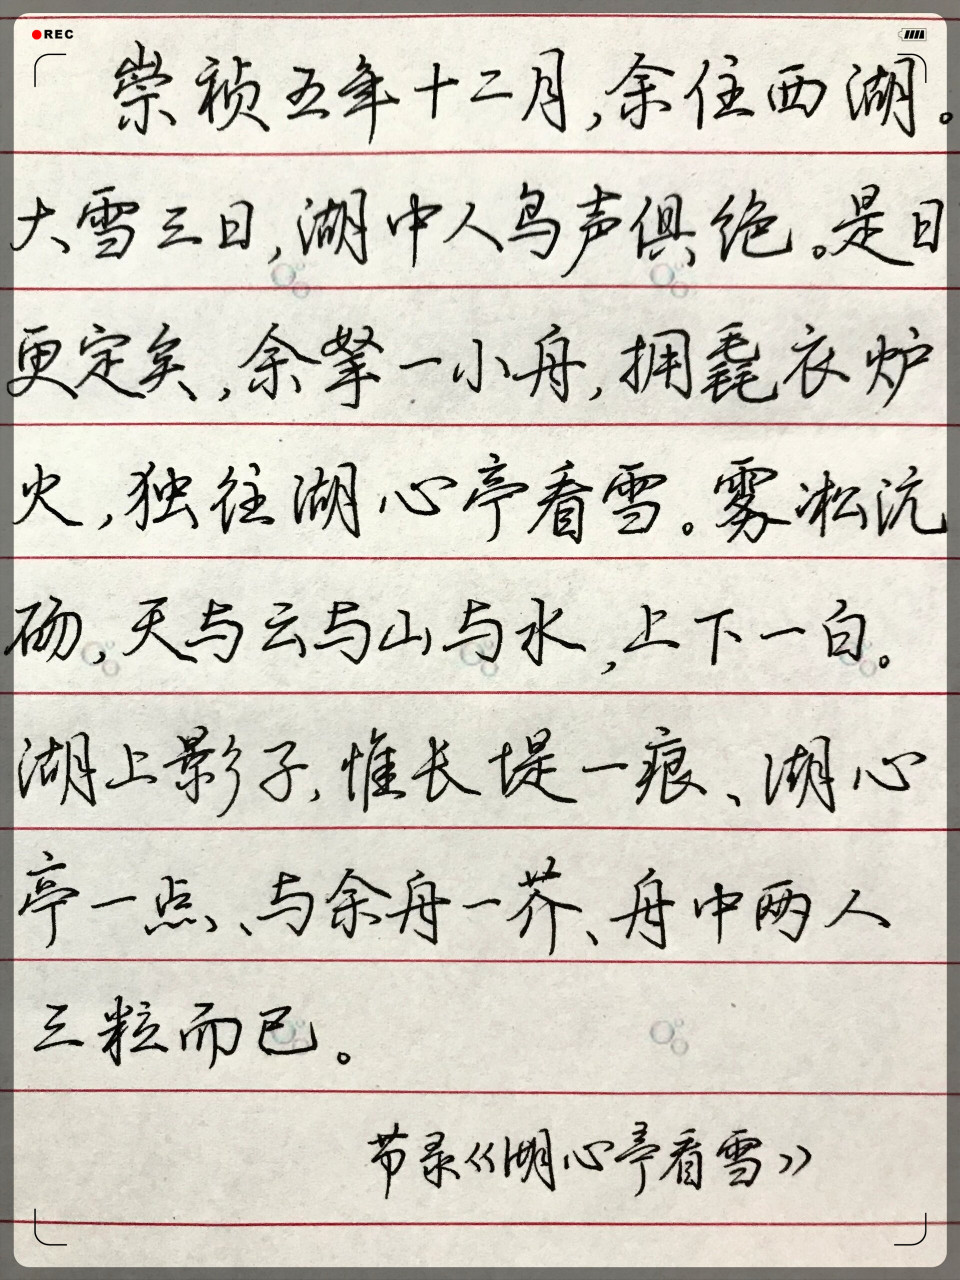 REC
崇祯五年十二月,余住西湖。
大雪三日,湖中人鸟声俱绝。是日
更定矣,余拏一小舟,拥毳衣炉
火,独往湖心亭看雪。雾凇沆
砀,天与云与山与水,上下一白。
湖上影子,惟长堤一痕、湖心
亭一点、与余舟一芥、舟中两人
三粒而已。
节录《湖心亭看雪》